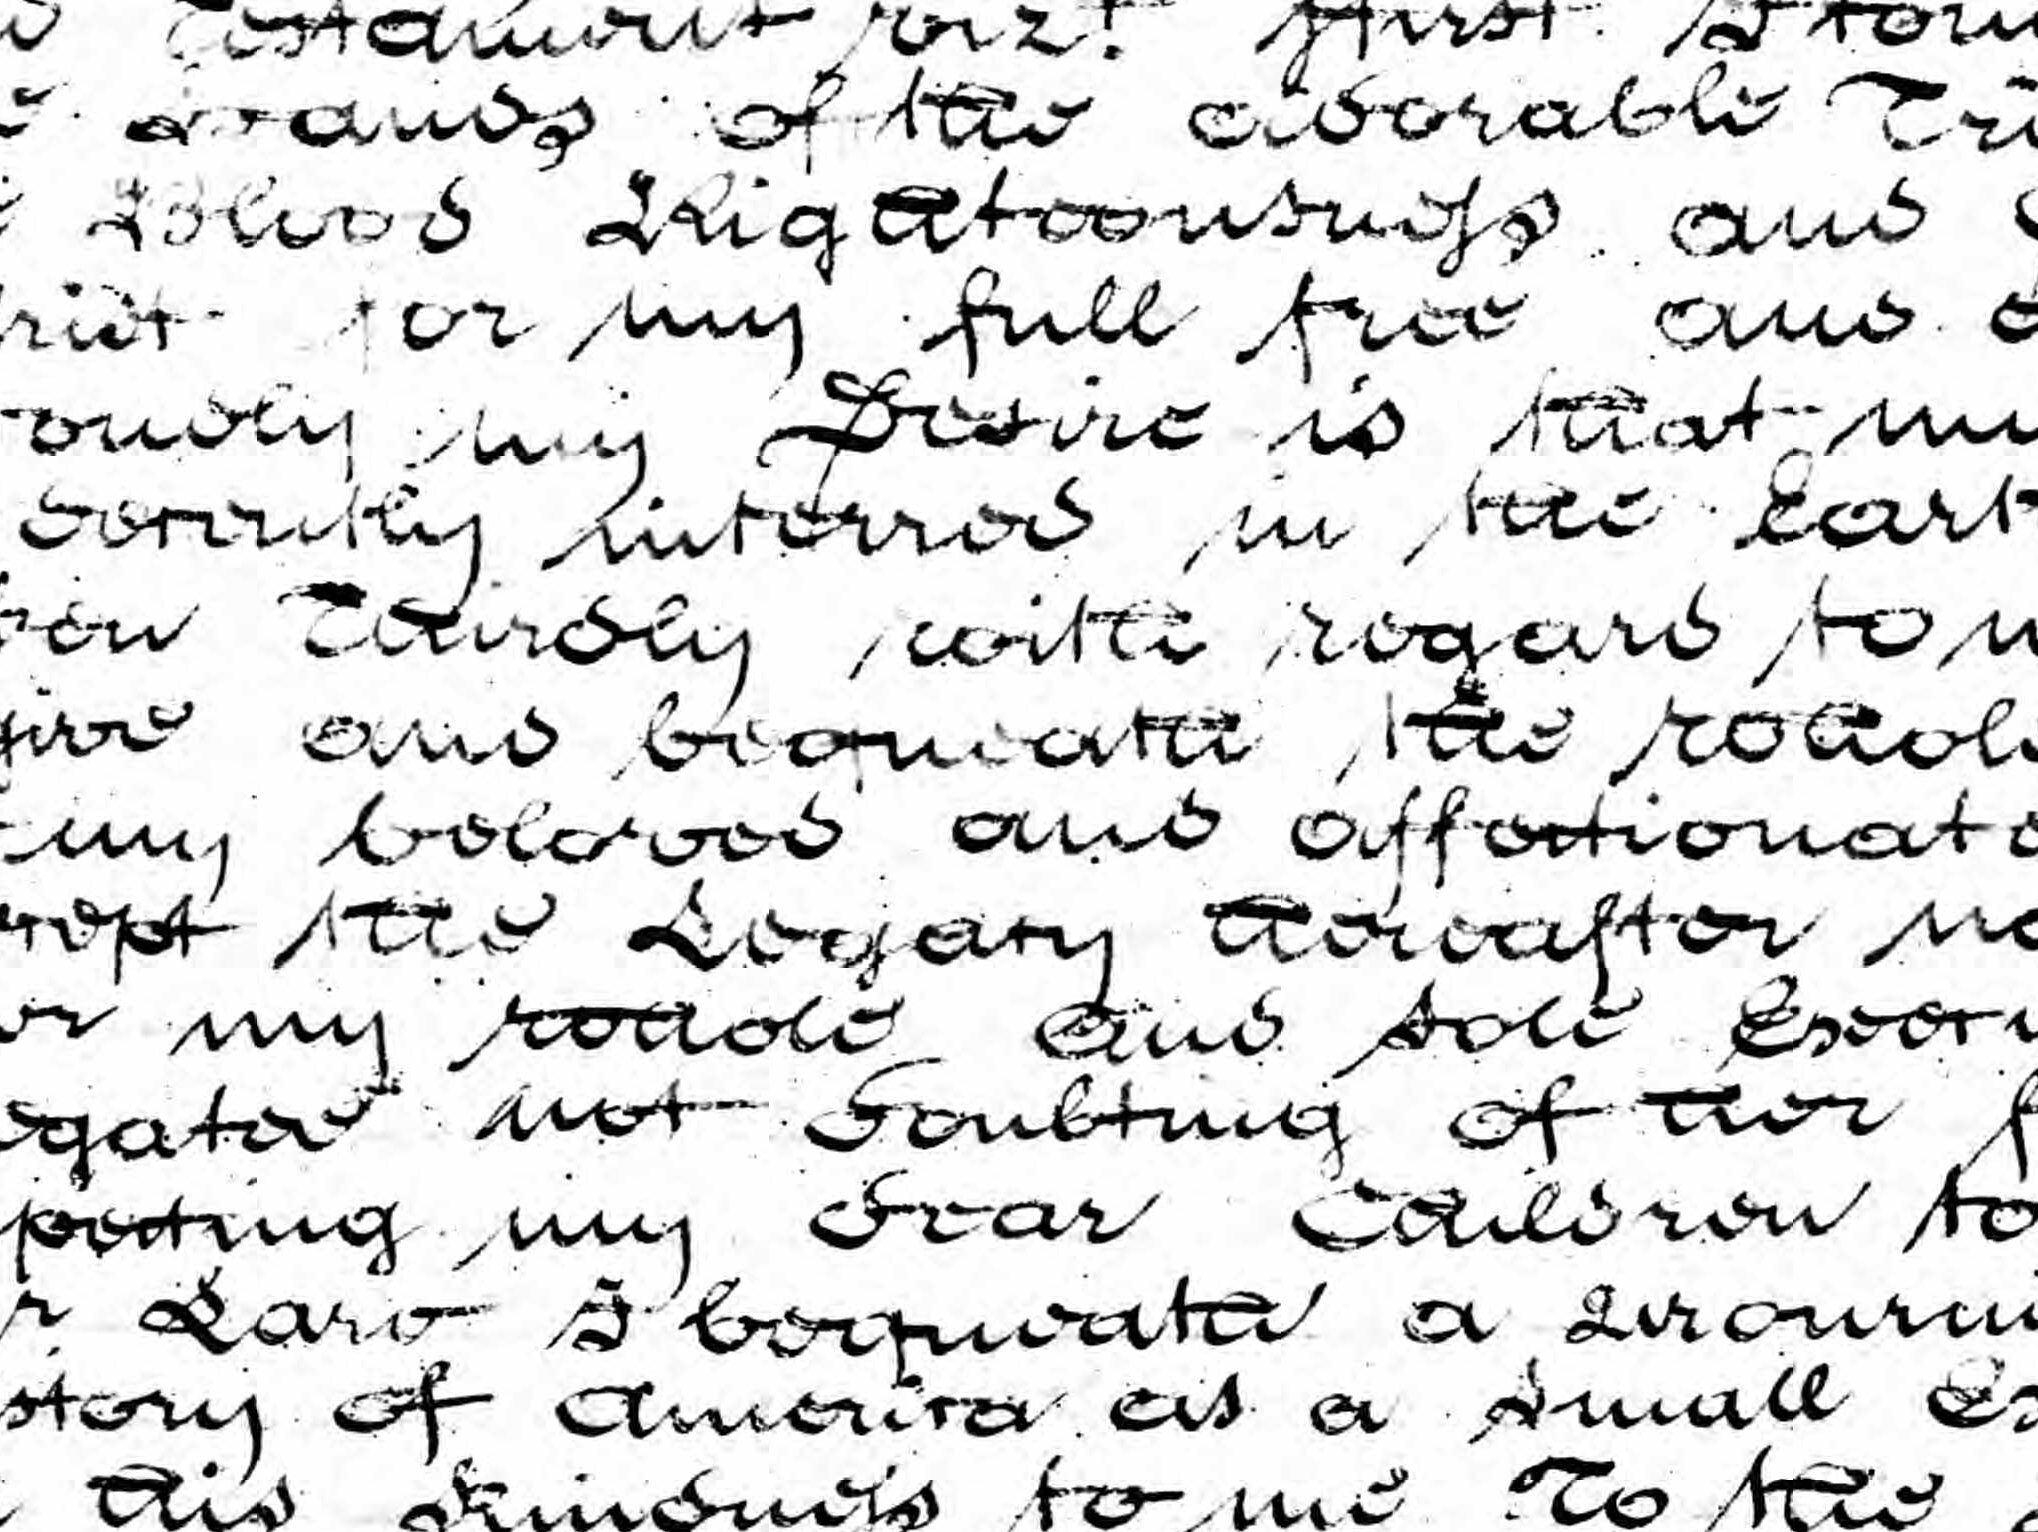 Testament viz! First I com
Hands of the adorable Tri
Blood Righteousness and
rist for my full free and
condly my Desire is that my
decently interred in the Eart
ren Thirdly with regard to m
give and bequeath the whole
my beloved and affectionate
xcept the Legacy hereafter me
or my whole and sole Execu
egatee not doubting of her f
pecting my dear Children to
r Law I bequeath a Mourni
story of America as a Small Es
his Kindness to me To the